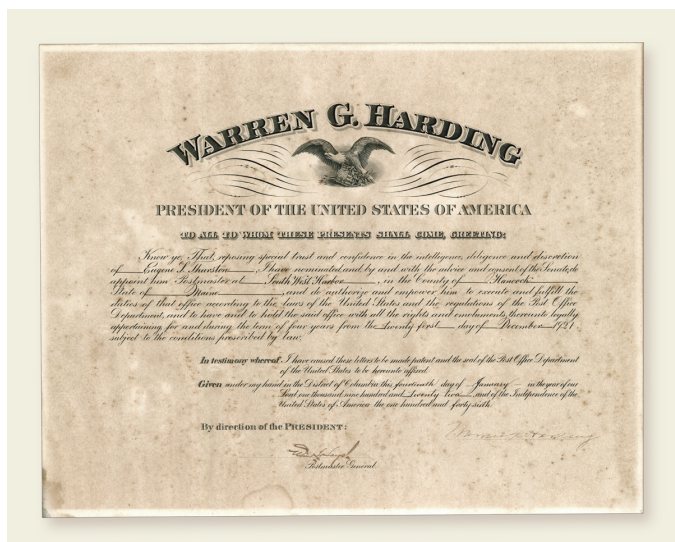 WARREN G. HARDING
PRESIDENT OF THE UNITED STATES OF AMERICA
TO ALL TO WHOM THESE PRESENTS SHALL COME, GREETING:
Know ye, That, reposing special trust and confidence in the intelligence, diligence and discretion
of Eugene S. Thurston, I have nominated, and, by and with the advice and consent of the Senate, do
appoint him Postmaster at South West Harbor, in the County of Hancock,
State of Maine, and do authorize and empower him to execute and fulfill the
duties of that office according to the laws of the United States and the regulations of the Post Office
Department, and to have and to hold the said office with all the rights and emoluments thereunto legally
appertaining for and during the term of four years from the twenty first day of December 1921
subject to the conditions prescribed by law.
In testimony whereof, I have caused these letters to be made patent and the seal of the Post Office Department
of the United States to be hereunto affixed.
Given under my hand in the District of Columbia this fourteenth day of January in the year of our
Lord one thousand nine hundred and twenty two and of the Independence of the
United States of America the one hundred and forty sixth.
By direction of the PRESIDENT:
Warren G Harding
Postmaster General